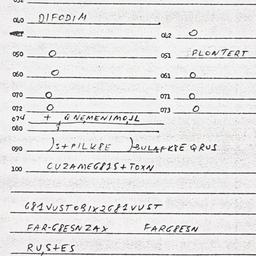 040 DIFODIM
042 O
050 O 051 PLONTERT
060 O 061 O
070 O 071 O
072 O 073 O
074 + GNEMENIMOJL
080
090 )S+PILK8E )BULAFK8E QRUS
100 CUZAMEG81S+TOXN
G81VUSTOBIX2G81VUST
FAR-G8ESNZAX FARG8ESN
RUS+ES